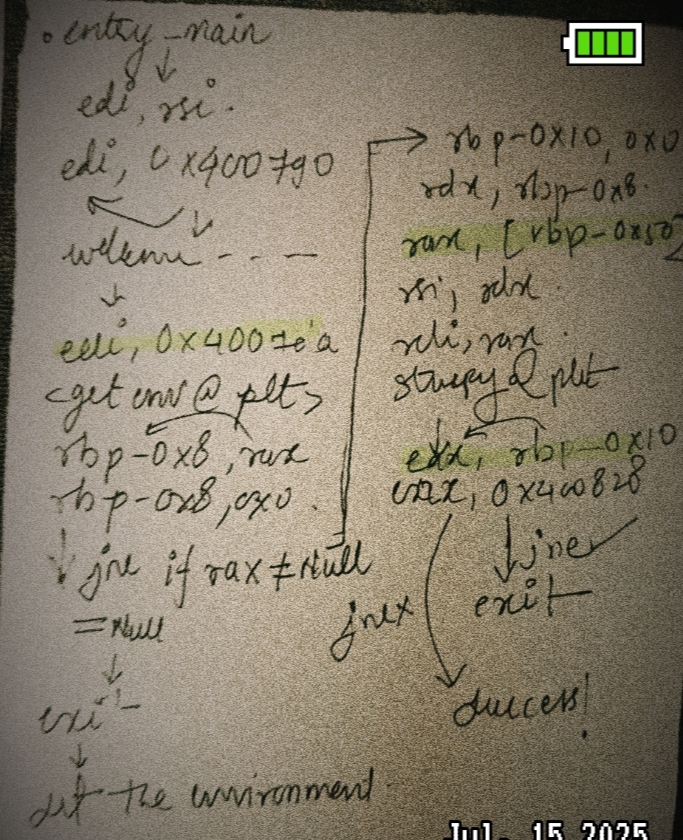 . entry_main
edi, rsi.
edi, 0x400790
welcome - - -
edi, 0x4007e'a
<getenv@plt>
rbp-0x8, rax
rbp-0x8, 0x0.
jne if rax ≠ Null
= Null
exit
set the environment
rbp-0x10, 0x0
rdx, rbp-0x8.
rax, [rbp-0x50
rsi, rdx.
rdi, rax.
strcpy@plt
rbp-0x10
eax, 0x400828
jne
exit
jne x
success!
Jul. 15 2025